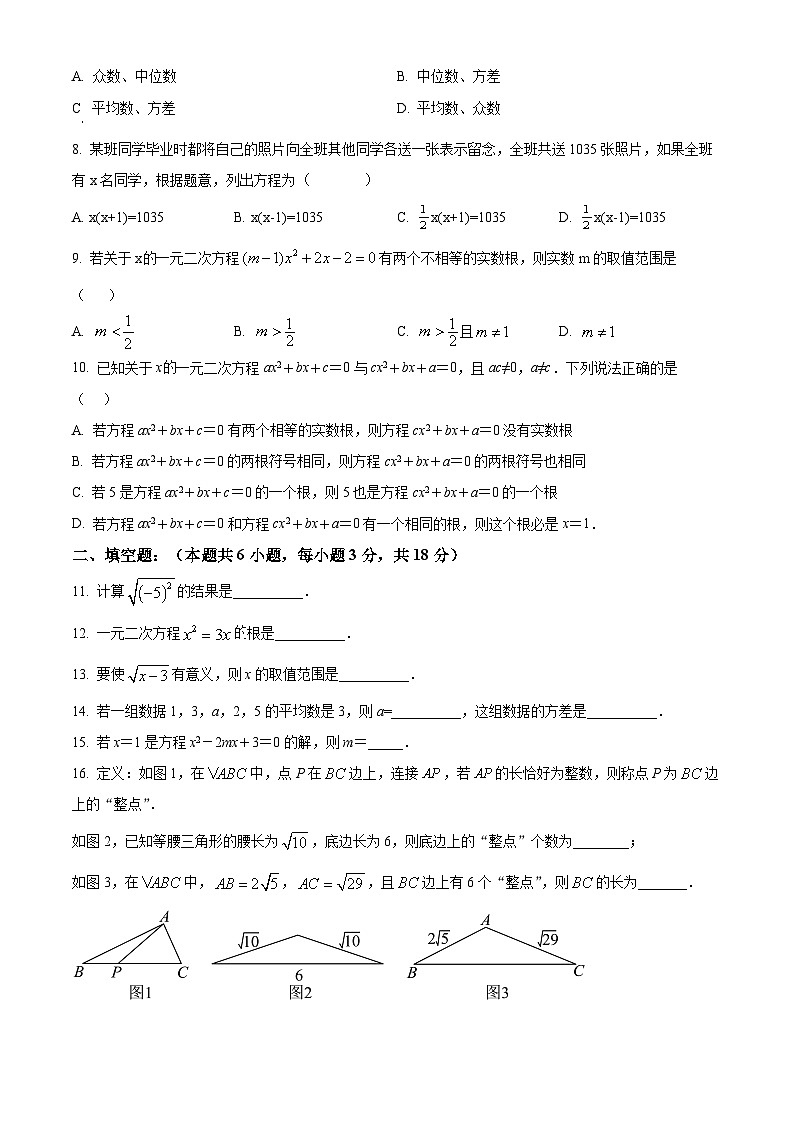 A. 众数、中位数 B. 中位数、方差
C. 平均数、方差 D. 平均数、众数
8. 某班同学毕业时都将自己的照片向全班其他同学各送一张表示留念，全班共送 1035 张照片，如果全班
有 x 名同学，根据题意，列出方程为（ ）
A. x(x+1)=1035 B. x(x-1)=1035 C. 1/2 x(x+1)=1035 D. 1/2 x(x-1)=1035
9. 若关于 x 的一元二次方程 (m−1)x²+2x−2=0 有两个不相等的实数根，则实数 m 的取值范围是
（ ）
A. m<1/2 B. m>1/2 C. m>1/2 且 m≠1 D. m≠1
10. 已知关于 x 的一元二次方程 ax²+bx+c=0 与 cx²+bx+a=0，且 ac≠0，a≠c．下列说法正确的是
（ ）
A. 若方程 ax²+bx+c=0 有两个相等的实数根，则方程 cx²+bx+a=0 没有实数根
B. 若方程 ax²+bx+c=0 的两根符号相同，则方程 cx²+bx+a=0 的两根符号也相同
C. 若 5 是方程 ax²+bx+c=0 的一个根，则 5 也是方程 cx²+bx+a=0 的一个根
D. 若方程 ax²+bx+c=0 和方程 cx²+bx+a=0 有一个相同的根，则这个根必是 x=1．
二、填空题：（本题共 6 小题，每小题 3 分，共 18 分）
11. 计算 √(−5)² 的结果是__________．
12. 一元二次方程 x²=3x 的根是__________．
13. 要使 √(x−3) 有意义，则 x 的取值范围是__________．
14. 若一组数据 1，3，a，2，5 的平均数是 3，则 a=__________，这组数据的方差是__________．
15. 若 x=1 是方程 x²－2mx+3=0 的解，则 m=_____．
16. 定义：如图 1，在 VABC 中，点 P 在 BC 边上，连接 AP，若 AP 的长恰好为整数，则称点 P 为 BC 边
上的“整点”．
如图 2，已知等腰三角形的腰长为 √10，底边长为 6，则底边上的“整点”个数为________；
如图 3，在 VABC 中，AB=2√5，AC=√29，且 BC 边上有 6 个“整点”，则 BC 的长为_______．
A
B P C
图1
√10 √10
6
图2
A
2√5 √29
B C
图3